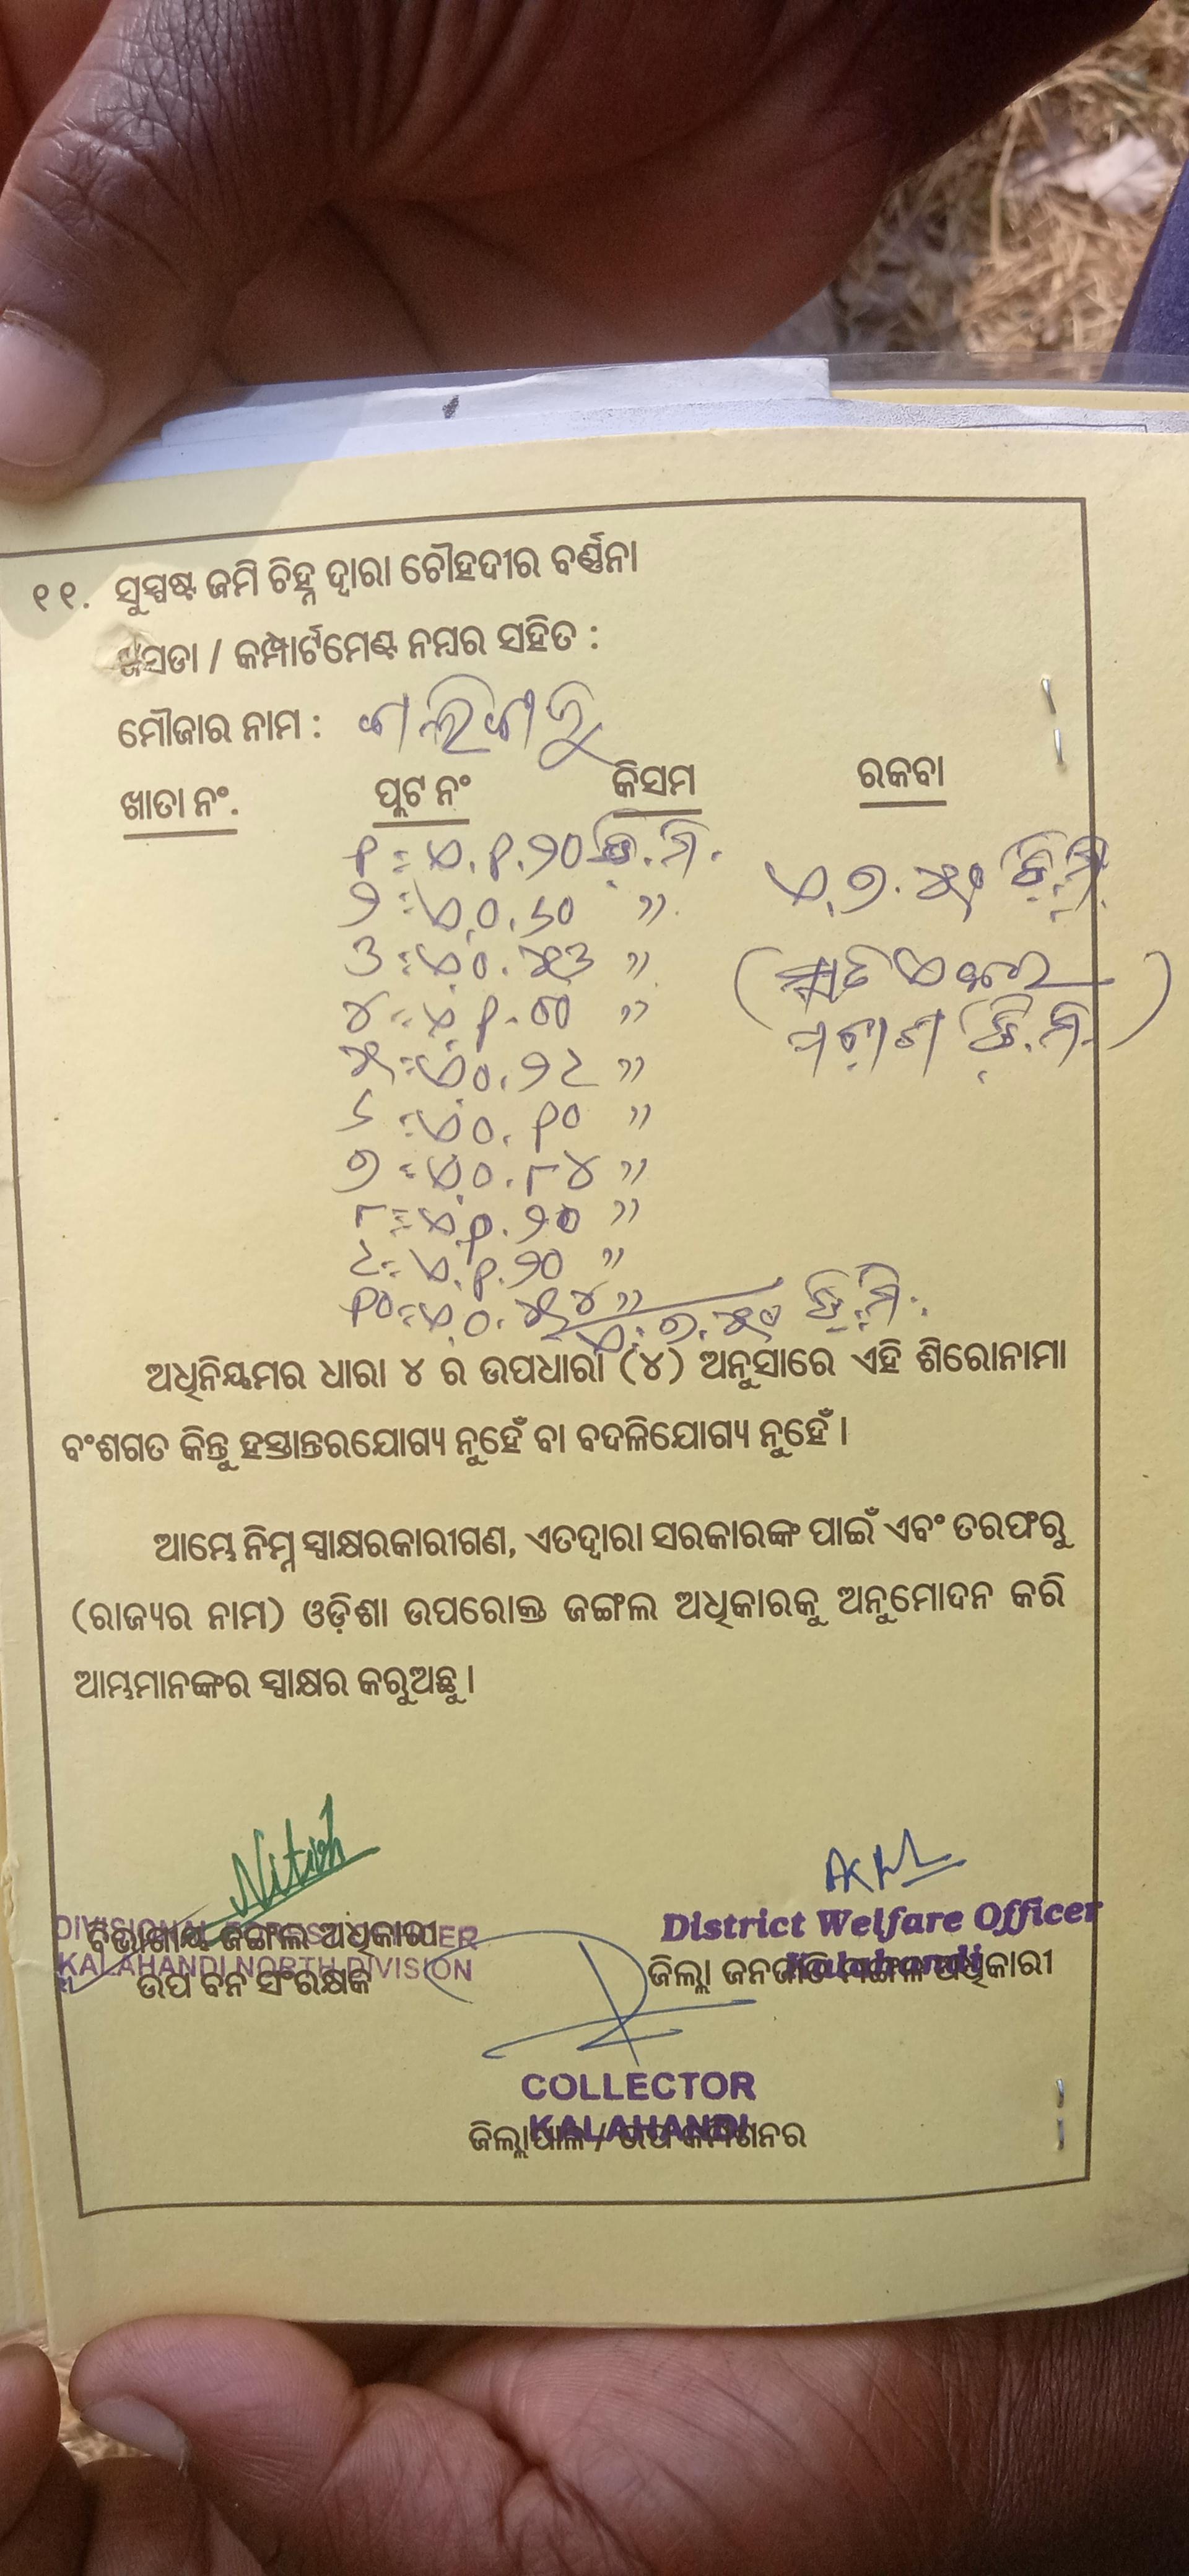 ୧୧. ସୁସ୍ପଷ୍ଟ ଜମି ଚିହ୍ନ ଦ୍ୱାରା ଚୌହଦୀର ବର୍ଣ୍ଣନା
ଖସଡା / କମ୍ପାର୍ଟମେଣ୍ଟ ନମ୍ବର ସହିତ :
ମୌଜାର ନାମ :
ଖାତା ନଂ. ପ୍ଲଟ ନଂ କିସମ ରକବା
୧ = ଏ.୧.୨୦ ଡି.ମି.
୨ = ଏ.୦.୬୦ "
୩ = ଏ.୦.୫୩ "
୪ = ଏ.୧.୦୦ "
୫ = ଏ.୦.୨୯ "
୬ = ଏ.୦.୧୦ "
୭ = ଏ.୦.୮୪ "
୮ = ଏ.୧.୨୦ "
୯ = ଏ.୧.୨୦ "
୧୦ = ଏ.୦.୫୪ "
ଏ.୭.୫୦ ଡି.ମି.
ଏ.୭.୫୦ ଡି.ମି.
(ସାତ ଏକର
ପଚାଶ ଡି.ମି.)
ଅଧିନିୟମର ଧାରା ୪ ର ଉପଧାରା (୪) ଅନୁସାରେ ଏହି ଶିରୋନାମା
ବଂଶଗତ କିନ୍ତୁ ହସ୍ତାନ୍ତରଯୋଗ୍ୟ ନୁହେଁ ବା ବଦଳିଯୋଗ୍ୟ ନୁହେଁ ।
ଆମ୍ଭେ ନିମ୍ନ ସ୍ୱାକ୍ଷରକାରୀଗଣ, ଏତଦ୍ୱାରା ସରକାରଙ୍କ ପାଇଁ ଏବଂ ତରଫରୁ
(ରାଜ୍ୟର ନାମ) ଓଡ଼ିଶା ଉପରୋକ୍ତ ଜଙ୍ଗଲ ଅଧିକାରକୁ ଅନୁମୋଦନ କରି
ଆମ୍ଭମାନଙ୍କର ସ୍ୱାକ୍ଷର କରୁଅଛୁ ।
Nitish
DIVISIONAL FOREST OFFICER
KALAHANDI NORTH DIVISION
ବିଭାଗୀୟ ଜଙ୍ଗଲ ଅଧିକାରୀ
ଉପ ବନ ସଂରକ୍ଷକ
District Welfare Officer
Kalahandi
ଜିଲ୍ଲା ଜନଜାତି ମଙ୍ଗଳ ଅଧିକାରୀ
COLLECTOR
KALAHANDI
ଜିଲ୍ଲାପାଳ / ଉପ କମିଶନର